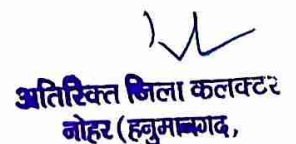 अतिरिक्त जिला कलक्टर
नोहर (हनुमानगढ,